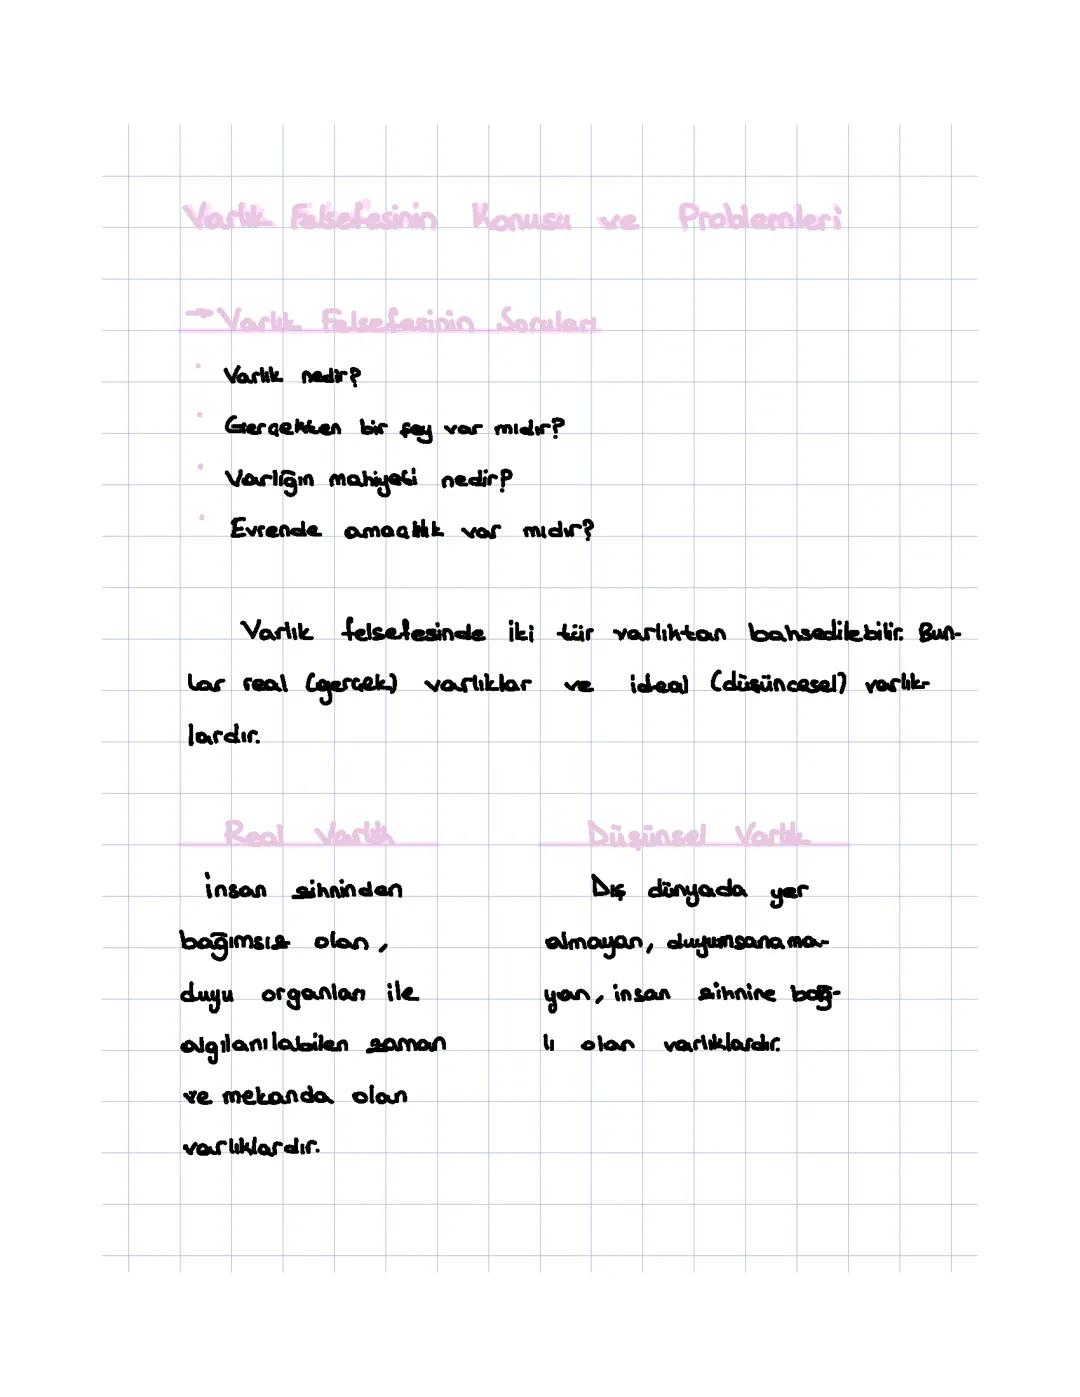 Varlık Felsefesinin Konusu ve Problemleri
→ Varlık Felsefesinin Soruları
• Varlık nedir?
• Gerçekten bir şey var mıdır?
• Varlığın mahiyeti nedir?
• Evrende amaçlılık var mıdır?
Varlık felsefesinde iki tür varlıktan bahsedilebilir. Bun-
lar real (gerçek) varlıklar ve ideal (düşüncesel) varlık-
lardır.
Real Varlık
insan zihninden
bağımsız olan,
duyu organları ile
algılanılabilen zaman
ve mekanda olan
varlıklardır.
Düşünsel Varlık
Dış dünyada yer
almayan, duyumsanama-
yan, insan zihnine bağ-
lı olan varlıklardır.